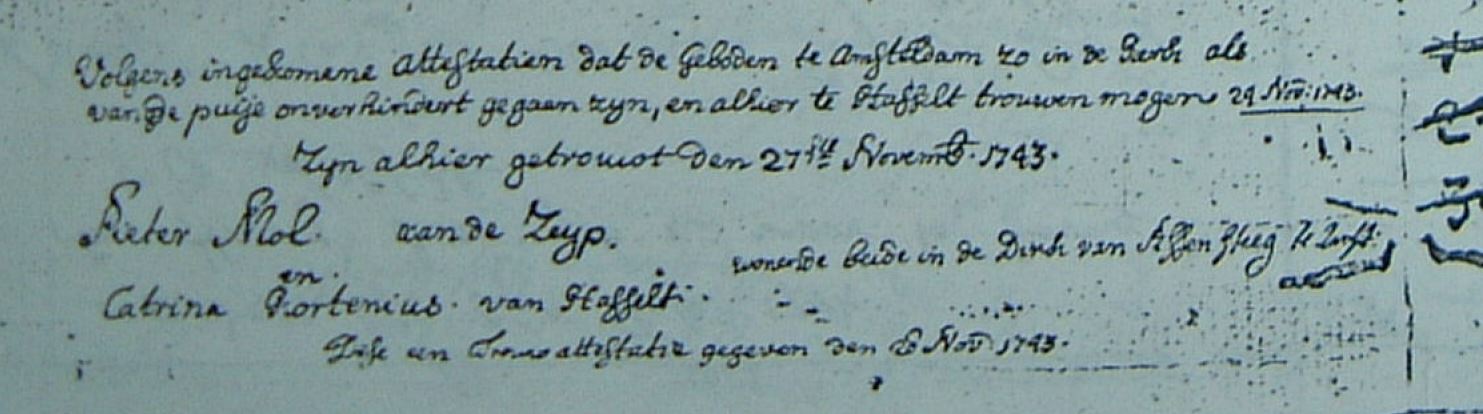 Volgens ingekomene attestatien dat de Geboden te Amsteldam zo in de Kerk als
van de puije onverhindert gegaen zyn, en alhier te Hasselt trouwen mogen 24 Nov: 1743.
Zyn alhier getrouwt den 27ste Novemb. 1743.
Pieter Mol. aan de Zeyp.
wonende beide in de Dirk van Assen steeg te
en
Catrina Kortenius. van Hasselt.
Dese een Trouw attestatie gegeven den Nov 1743.